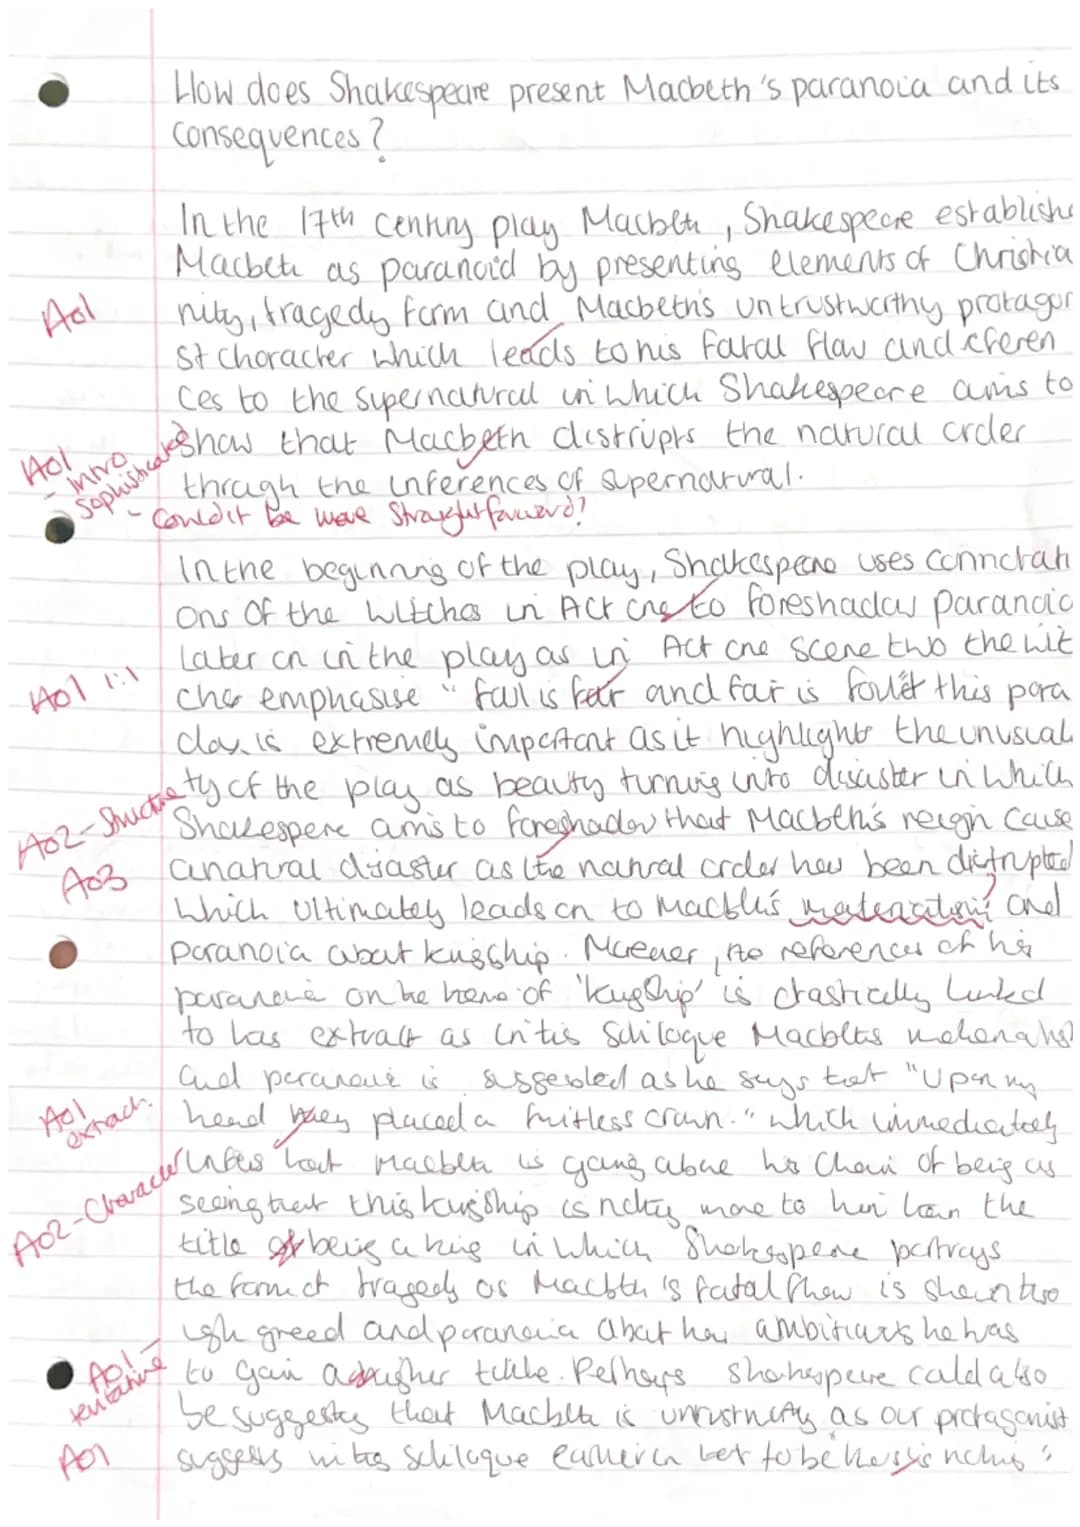 How does Shakespeare present Macbeth's paranoia and its
consequences?
In the 17th Century play Macbeth, Shakespeare establishe
Macbeth as paranoid by presenting elements of Christia
Ao1
nity, tragedy form and Macbeth's untrustworthy protagon
st character which leads to his fatal flaw and eferen
ces to the supernatural in which Shakespeare aims to
show that Macbeth distrupts the natural order
Ao1
- Intro
sophisticated
through the inferences of supernatural.
- Could it be more straightforward?
In the beginning of the play, Shakespeare uses connotati
ons of the witches in Act one to foreshadow paranoia
later on in the play as in Act one scene two the wit
Ao1 1:1
ches emphasise "fall is fair and fair is foul" this para
dox is extremely important as it highlights the unusual
ty of the play as beauty turning into disaster in which
Ao2 - Structure
Shakespere aims to foreshadow that Macbeth's reign cause
Ao3
a natural disaster as the natural order has been distrupted
which ultimately leads on to Macbeth's and
paranoia about kingship. Moreover, the references of his
paranoia on the theme of 'kingship' is drastically linked
to this extract as in this soliloque Macbeths
and paranoia is suggested as he says that "Upon my
Ao1
extract.
head they placed a fruitless crown." which immediately
infers that Macbeth is going above his Chain of being as
Ao2 - Character
seeing that this kingship is nothing more to him than the
title of being a king in which Shakespere portrays
the form of tragedy as Macbeth's fatal flaw is shown thro
ugh greed and paranoia about how ambitious he was
Ao1 -
tentative
to gain a higher title. Perhaps Shakespeare could also
be suggesting that Macbeth is untrustworthy as our protagonist
Ao1
suggests in his soliloque earlier on that to be thus is nothing"